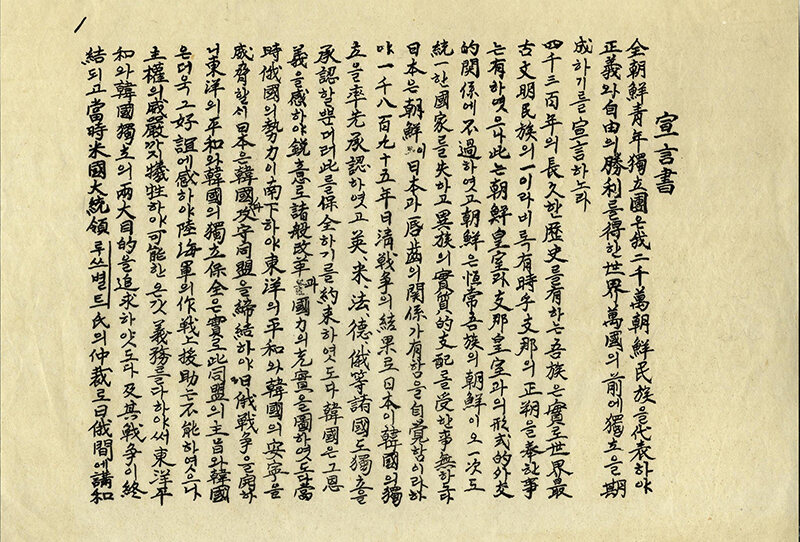 1
宣言書
全朝鮮青年獨立團은我二千萬朝鮮民族을代表하야
正義와自由의勝利를得한世界萬國의前에獨立을期
成하기를宣言하노라
四千三百年의長久한歷史를有하는吾族은實로世界最
古文明民族의一이라비록有時乎支那의正朔을奉한事
는有하엿으나此는朝鮮皇室과支那皇室과의形式的外交
的關係에不過하엿고朝鮮은恒常吾族의朝鮮이오一次도
統一한國家를失하고異族의實質的支配를受한事無하도다
日本은朝鮮이日本과唇齒의關係가有함을自覺함이라하
야一千八百九十五年日淸戰争의結果로日本이韓國의獨
立을率先承認하엿고英、米、法、德、俄等諸國도獨立을
承認할뿐더러此를保全하기를約束하엿도다韓國은그恩
義을感하야銳意로諸般改革과國力의充實을圖하엿도다當
時俄國의勢力이南下하야東洋의平和와韓國의安寧을
威脅할새日本은韓國과攻守同盟을締結하야日俄戰争을開하
니東洋의平和와韓國의獨立保全은實로此同盟의主旨와韓國
은더욱그好誼에感하야陸海軍의作戰上援助는不能하엿으나
主權의威嚴까지犧牲하야可能한온갓義務를다하야써東洋平
和와韓國獨立의兩大目的을追求하얏도다及其戰争이終
結되고當時米國大統領루쓰벨트氏의仲裁로日俄間에講和